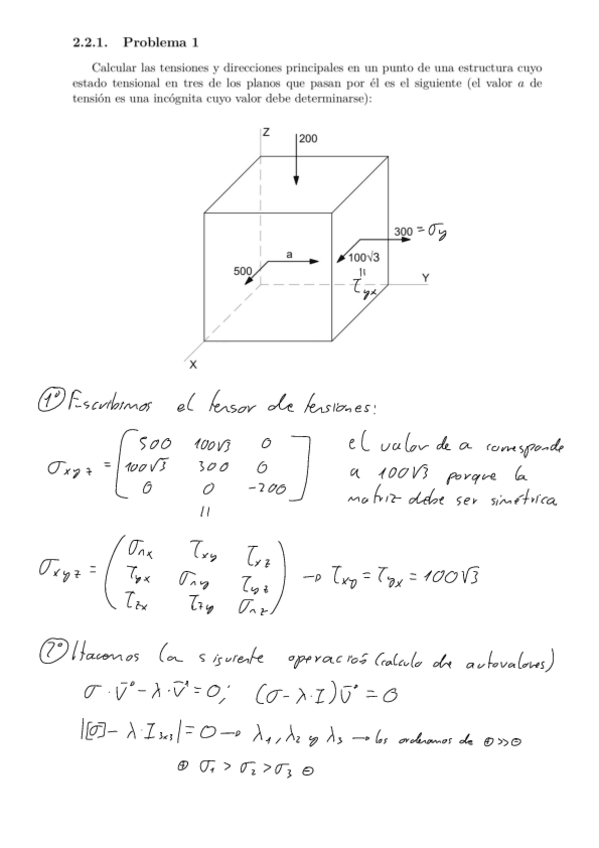 2.2.1. Problema 1
Calcular las tensiones y direcciones principales en un punto de una estructura cuyo
estado tensional en tres de los planos que pasan por él es el siguiente (el valor a de
tensión es una incógnita cuyo valor debe determinarse):
Z
200
300 = σy
a
100√3
500
=
τyx
Y
X
1º Escribimos el tensor de tensiones:
σxyz = [500 100√3 0
100√3 300 0
0 0 -200]
=
el valor de a corresponde
a 100√3 porque la
matriz debe ser simétrica
σxyz = (σnx τxy τxz
τyx σny τyz
τzx τzy σnz) → τxy = τyx = 100√3
2º Hacemos la siguiente operación (calculo de autovalores)
σ · v⃗ - λ · v⃗ = 0; (σ - λ · I) v⃗ = 0
|[σ] - λ · I3x3| = 0 → λ1, λ2 y λ3 → los ordenamos de ⊕ >> ⊖
⊕ σ1 > σ2 > σ3 ⊖